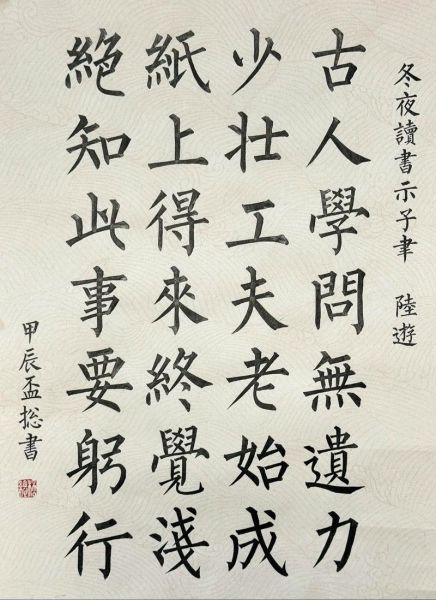 冬夜讀書示子聿 陸遊
古人學問無遺力
少壯工夫老始成
紙上得來終覺淺
絕知此事要躬行
甲辰盃摠書